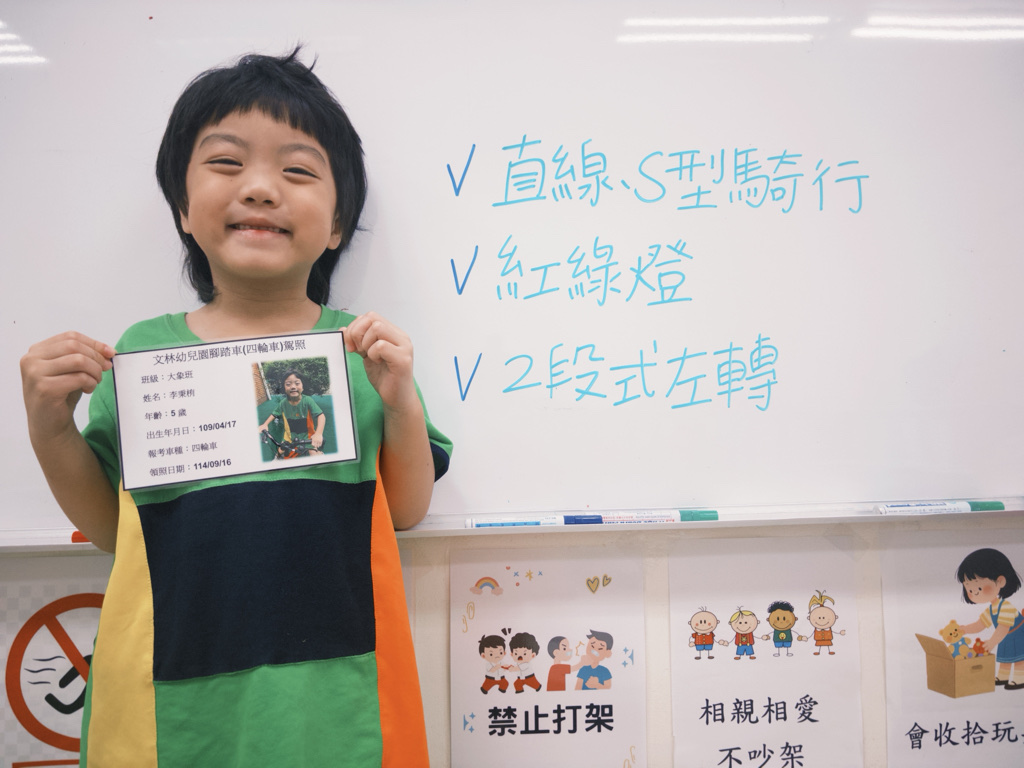 直線、S型騎行
紅綠燈
2段式左轉
文林幼兒園腳踏車(四輪車)駕照
班級：大象班
姓名：李秉栯
年齡：5 歲
出生年月日：109/04/17
報考車種：四輪車
領照日期：114/09/16
禁止打架
相親相愛
不吵架
會收拾玩